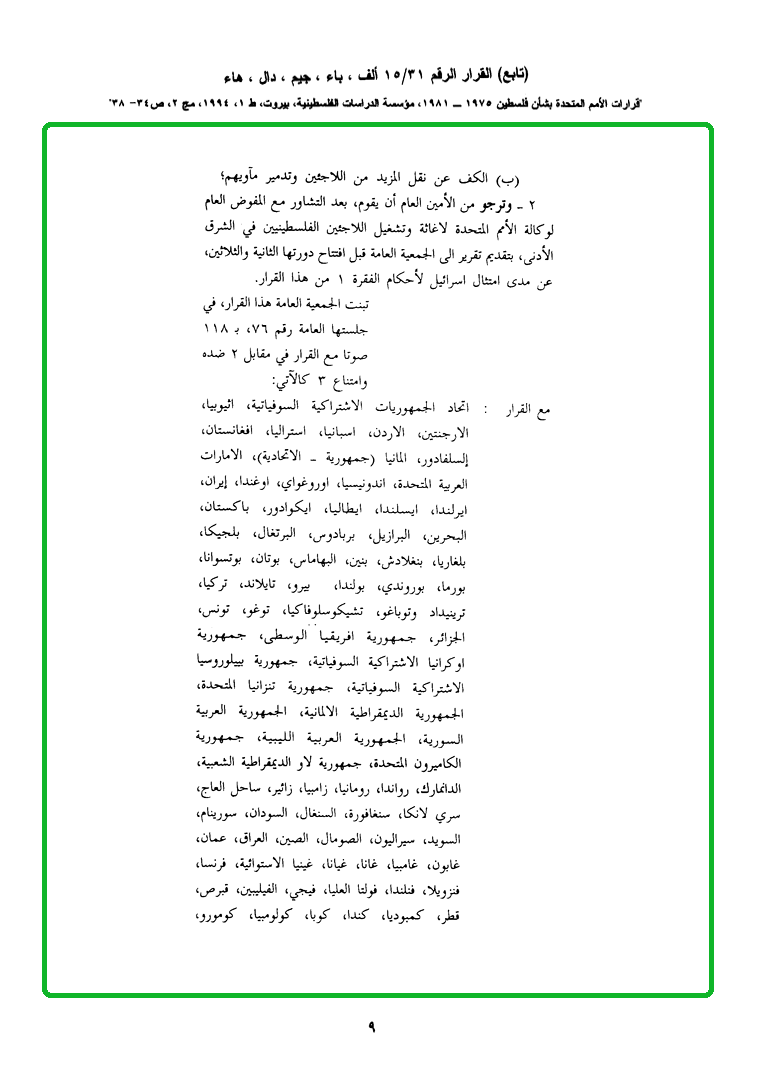 (تابع) القرار الرقم ١٥/٣١ ألف ، باء ، جيم ، دال ، هاء
"قرارات الأمم المتحدة بشأن فلسطين ١٩٧٥ ــ ١٩٨١، مؤسسة الدراسات الفلسطينية، بيروت، ط ١، ١٩٩٤، مج ٢، ص٣٤- ٣٨"
(ب) الكف عن نقل المزيد من اللاجئين وتدمير مآويهم؛
٢ ــ وترجو من الأمين العام أن يقوم، بعد التشاور مع المفوض العام
لوكالة الأمم المتحدة لاغاثة وتشغيل اللاجئين الفلسطينيين في الشرق
الأدنى، بتقديم تقرير الى الجمعية العامة قبل افتتاح دورتها الثانية والثلاثين،
عن مدى امتثال اسرائيل لأحكام الفقرة ١ من هذا القرار.
تبنت الجمعية العامة هذا القرار، في
جلستها العامة رقم ٧٦، بـ ١١٨
صوتا مع القرار في مقابل ٢ ضده
وامتناع ٣ كالآتي:
مع القرار : اتحاد الجمهوريات الاشتراكية السوفياتية، اثيوبيا،
الارجنتين، الاردن، اسبانيا، استراليا، افغانستان،
إلسلفادور، المانيا (جمهورية ــ الاتحادية)، الامارات
العربية المتحدة، اندونيسيا، اوروغواي، اوغندا، إيران،
ايرلندا، ايسلندا، ايطاليا، ايكوادور، باكستان،
البحرين، البرازيل، بربادوس، البرتغال، بلجيكا،
بلغاريا، بنغلادش، بنين، البهاماس، بوتان، بوتسوانا،
بورما، بوروندي، بولندا، بيرو، تايلاند، تركيا،
ترينيداد وتوباغو، تشيكوسلوفاكيا، توغو، تونس،
الجزائر، جمهورية افريقيا الوسطى، جمهورية
اوكرانيا الاشتراكية السوفياتية، جمهورية بييلوروسيا
الاشتراكية السوفياتية، جمهورية تنزانيا المتحدة،
الجمهورية الديمقراطية الالمانية، الجمهورية العربية
السورية، الجمهورية العربية الليبية، جمهورية
الكاميرون المتحدة، جمهورية لاو الديمقراطية الشعبية،
الدانمارك، رواندا، رومانيا، زامبيا، زائير، ساحل العاج،
سري لانكا، سنغافورة، السنغال، السودان، سورينام،
السويد، سيراليون، الصومال، الصين، العراق، عمان،
غابون، غامبيا، غانا، غيانا، غينيا الاستوائية، فرنسا،
فنزويلا، فنلندا، فولتا العليا، فيجي، الفيليبين، قبرص،
قطر، كمبوديا، كندا، كوبا، كولومبيا، كومورو،
٩